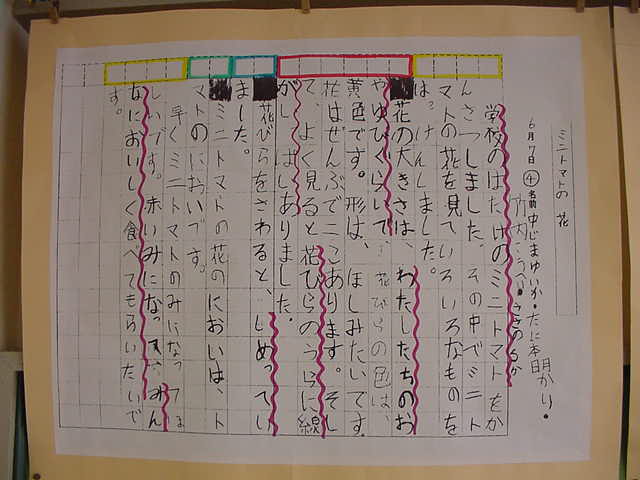 ミニトマトの花
6月7日 ④ 名前 中じまゆいか・たに本明かり・
竹内こうへい・ささのるか
学校のはたけのミニトマトをか
んさつしました。その中でミニト
マトの花を見ていろいろなものを
はっけんしました。
花の大きさは、わたしたちのお
やゆびくらいで、花びらの色は、
黄色です。形は、ほしみたいです。
花はぜんぶで二こあります。そし
て、よく見ると花びらのうらに線
がしっぱしありました。
花びらをさわると、しめってい
ました。
ミニトマトの花のにおいは、ト
マトのにおいです。
早くミニトマトのみになってほ
しいです。赤いみになって、みん
なにおいしく食べてもらいたいで
す。